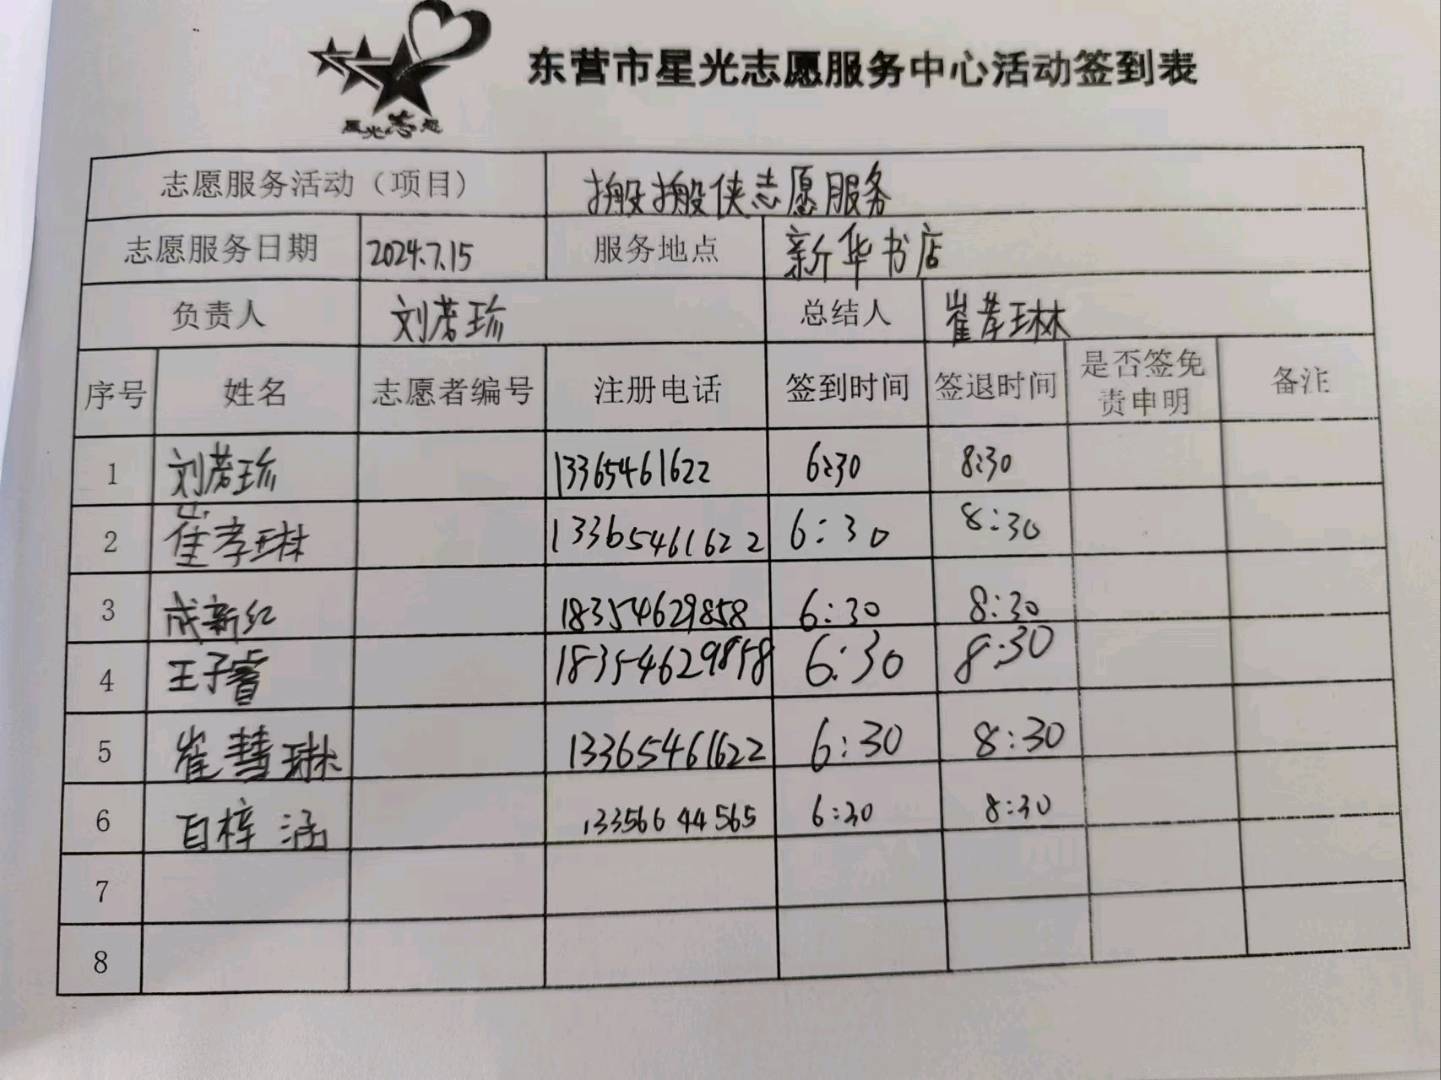 星光志愿
东营市星光志愿服务中心活动签到表
志愿服务活动（项目） 搬搬侠志愿服务
志愿服务日期 2024.7.15 服务地点 新华书店
负责人 刘若珍 总结人 崔孝琳
序号 姓名 志愿者编号 注册电话 签到时间 签退时间 是否签免责申明 备注
1 刘若珍 13365461622 6:30 8:30
2 崔孝琳 13365461622 6:30 8:30
3 成新红 18354629858 6:30 8:30
4 王子睿 18354629858 6:30 8:30
5 崔慧琳 13365461622 6:30 8:30
6 白梓涵 13356644565 6:30 8:30
7
8